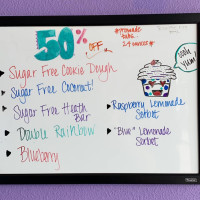 50%
OFF
#homemade
tubs
24 ounces#
Sugar Free Cookie Dough
Sugar Free Coconut!
Sugar Free Heath
Bar
Double Rainbow
Blueberry
ooh
Yum!
Raspberry Lemonade
Sorbet
"Blue" Lemonade
Sorbet